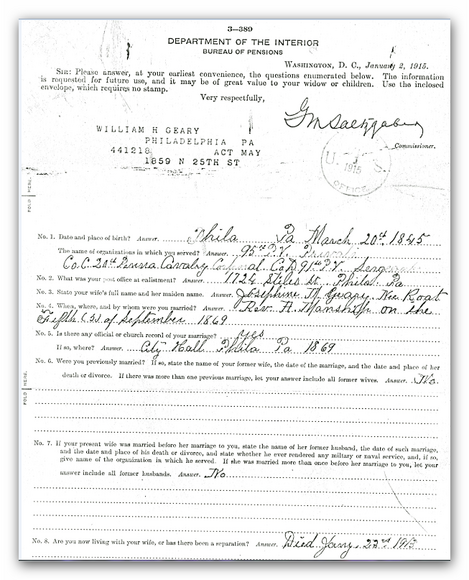 3—389
DEPARTMENT OF THE INTERIOR
BUREAU OF PENSIONS
WASHINGTON, D. C., January 2, 1915.
SIR: Please answer, at your earliest convenience, the questions enumerated below. The information
is requested for future use, and it may be of great value to your widow or children. Use the inclosed
envelope, which requires no stamp.
Very respectfully,
Commissioner.
WILLIAM H GEARY
PHILADELPHIA PA
441218 ACT MAY
1859 N 25TH ST
U. S.
1915
OFFICE.
FOLD HERE.
No. 1. Date and place of birth? Answer. Phila Pa March 20th 1845
The name of organizations in which you served? Answer. 95th P.V.
Co. C. 20th Penna Cavalry 91st P.V.
No. 2. What was your post office at enlistment? Answer. 1724 Stiles St. Phila. Pa
No. 3. State your wife's full name and her maiden name. Answer. Josephine M. Geary. Nee Roat
No. 4. When, where, and by whom were you married? Answer. Rev. A. Manship on the
Fifth (5) of September 1869
No. 5. Is there any official or church record of your marriage? yes
If so, where? Answer. City Hall. Phila Pa 1869
No. 6. Were you previously married? If so, state the name of your former wife, the date of the marriage, and the date and place of her
death or divorce. If there was more than one previous marriage, let your answer include all former wives. Answer. No.
FOLD HERE.
No. 7. If your present wife was married before her marriage to you, state the name of her former husband, the date of such marriage,
and the date and place of his death or divorce, and state whether he ever rendered any military or naval service, and, if so,
give name of the organization in which he served. If she was married more than once before her marriage to you, let your
answer include all former husbands. Answer. No
No. 8. Are you now living with your wife, or has there been a separation? Answer. Died Jany. 23rd 1913